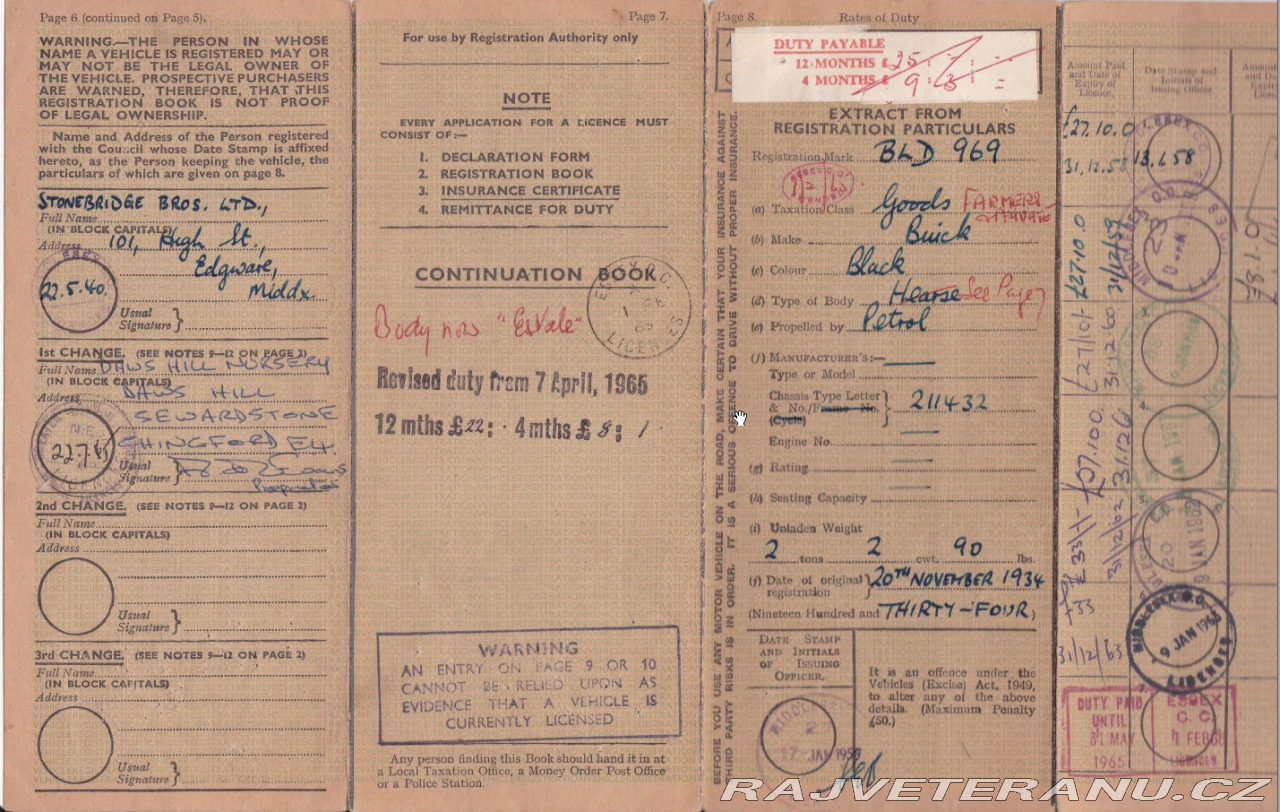 Page 6 (continued on Page 5).
WARNING.—THE PERSON IN WHOSE
NAME A VEHICLE IS REGISTERED MAY OR
MAY NOT BE THE LEGAL OWNER OF
THE VEHICLE. PROSPECTIVE PURCHASERS
ARE WARNED, THEREFORE, THAT THIS
REGISTRATION BOOK IS NOT PROOF
OF LEGAL OWNERSHIP.
Name and Address of the Person registered
with the Council whose Date Stamp is affixed
hereto, as the Person keeping the vehicle, the
particulars of which are given on page 8.
STONEBRIDGE BROS. LTD.,
Full Name
(IN BLOCK CAPITALS)
Address 101, High St.,
Edgware,
22.5.40. Middx.
Usual
Signature }
1st CHANGE. (SEE NOTES 9—12 ON PAGE 2)
Full Name DAWS HILL NURSERY
(IN BLOCK CAPITALS)
Address DAWS HILL
SEWARDSTONE
CHINGFORD E4.
Usual
Signature }
2nd CHANGE. (SEE NOTES 9—12 ON PAGE 2)
Full Name
(IN BLOCK CAPITALS)
Address
Usual
Signature }
3rd CHANGE. (SEE NOTES 9—12 ON PAGE 2)
Full Name
(IN BLOCK CAPITALS)
Address
Usual
Signature }
Page 7.
For use by Registration Authority only
NOTE
EVERY APPLICATION FOR A LICENCE MUST
CONSIST OF:—
1. DECLARATION FORM
2. REGISTRATION BOOK
3. INSURANCE CERTIFICATE
4. REMITTANCE FOR DUTY
CONTINUATION BOOK
LICENCES
Body now "Estate"
Revised duty from 7 April, 1965
12 mths £22: - 4 mths £ 8: 1
WARNING
AN ENTRY ON PAGE 9 OR 10
CANNOT BE RELIED UPON AS
EVIDENCE THAT A VEHICLE IS
CURRENTLY LICENSED
Any person finding this Book should hand it in at
a Local Taxation Office, a Money Order Post Office
or a Police Station.
BEFORE YOU USE ANY MOTOR VEHICLE ON THE ROAD, MAKE CERTAIN THAT YOUR INSURANCE AGAINST
THIRD PARTY RISKS IS IN ORDER. IT IS A SERIOUS OFFENCE TO DRIVE WITHOUT PROPER INSURANCE.
Page 8. Rates of Duty
DUTY PAYABLE
12 MONTHS £ 25
4 MONTHS £ 9
EXTRACT FROM
REGISTRATION PARTICULARS
Registration Mark BLD 969
(a) Taxation Class Goods FARMERS
(b) Make Buick
(c) Colour Black
(d) Type of Body Hearse See Page 7
(e) Propelled by Petrol
(f) MANUFACTURER'S:—
Type or Model
Chassis Type Letter
& No./Frame No. } 211432
(Cycle)
Engine No
(g) Rating
(h) Seating Capacity
(i) Unladen Weight
2 tons 2 cwt. 90 lbs.
(j) Date of original
registration } 20TH NOVEMBER 1934
(Nineteen Hundred and THIRTY-FOUR)
DATE STAMP
AND INITIALS
OF ISSUING
OFFICER.
It is an offence under the
Vehicles (Excise) Act, 1949,
to alter any of the above
details. (Maximum Penalty
£50.)
Amount Paid
and Date of
Expiry of
Licence.
Date Stamp and
Initials of
Issuing Officer.
£27.10.0
31.12.58 13.1.58
£27.10.0 31/12/59
£27/10/- 31.12.60
31/12/62
31/12/63
MIDDLESEX C.C.
9 JAN 196
LICENCES
DUTY PAID
UNTIL
31 MAY
1965
ESSEX
C. C.
1 FEB
LICENCES
RAJVETERANU.CZ